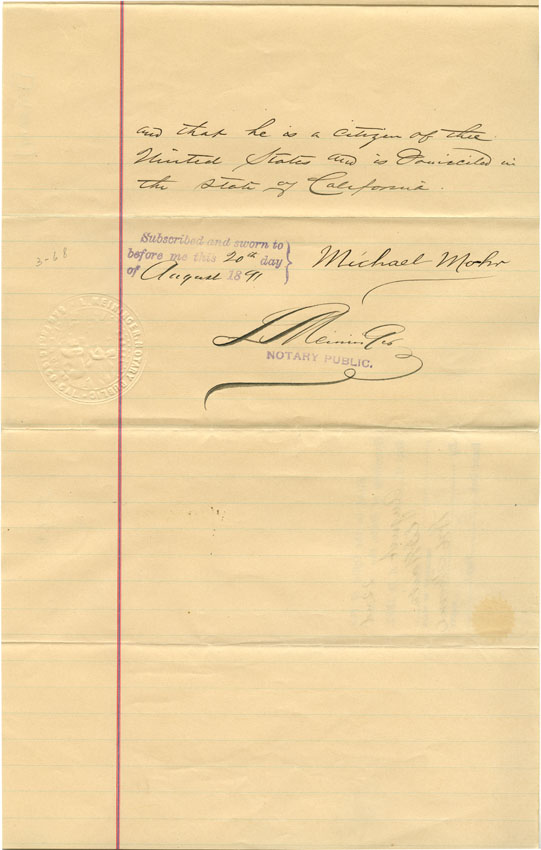 and that he is a citizen of the
United States and is Domiciled in
the State of California.
Subscribed and sworn to
before me this 20th day
of August 1891
Michael Mohr
L Meininger
NOTARY PUBLIC.
3-68
L. MEININGER NOTARY PUBLIC